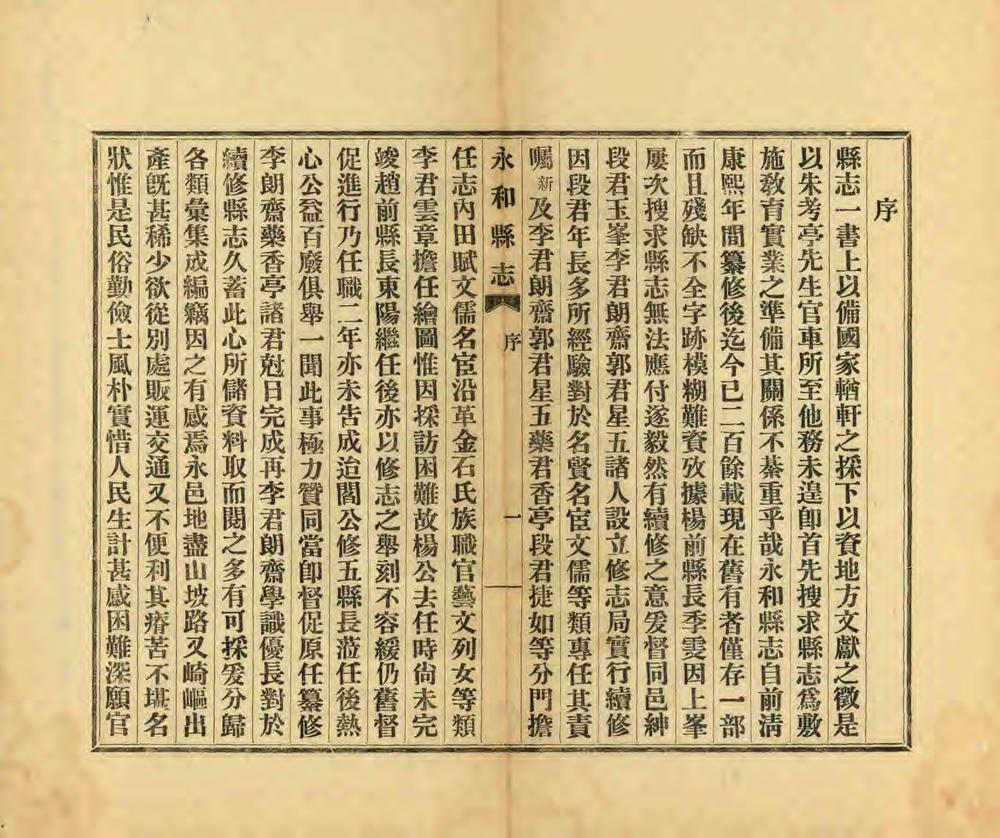 序
縣志一書上以備國家輶軒之採下以資地方文獻之徵是
以朱考亭先生官車所至他務未遑卽首先搜求縣志爲敷
施敎育實業之準備其關係不綦重乎哉永和縣志自前淸
康熙年間纂修後迄今已二百餘載現在舊有者僅存一部
而且殘缺不全字跡模糊難資攷據楊前縣長季雯因上峯
屢次搜求縣志無法應付遂毅然有續修之意爰督同邑紳
段君玉峯李君朗齋郭君星五諸人設立修志局實行續修
因段君年長多所經驗對於名賢名宦文儒等類專任其責
囑新及李君朗齋郭君星五藥君香亭段君捷如等分門擔
永和縣志 序 一
任志內田賦文儒名宦沿革金石氏族職官藝文列女等類
李君雲章擔任繪圖惟因採訪困難故楊公去任時尙未完
竣趙前縣長東陽繼任後亦以修志之舉刻不容緩仍舊督
促進行乃任職二年亦未吿成迨閻公修五縣長蒞任後熱
心公益百廢俱舉一聞此事極力贊同當卽督促原任纂修
李朗齋藥香亭諸君尅日完成再李君朗齋學識優長對於
續修縣志久蓄此心所儲資料取而閱之多有可採爰分歸
各類彙集成編竊因之有感焉永邑地盡山坡路又崎嶇出
產旣甚稀少欲從別處販運交通又不便利其瘠苦不堪名
狀惟是民俗勤儉士風朴實惜人民生計甚感困難深願官